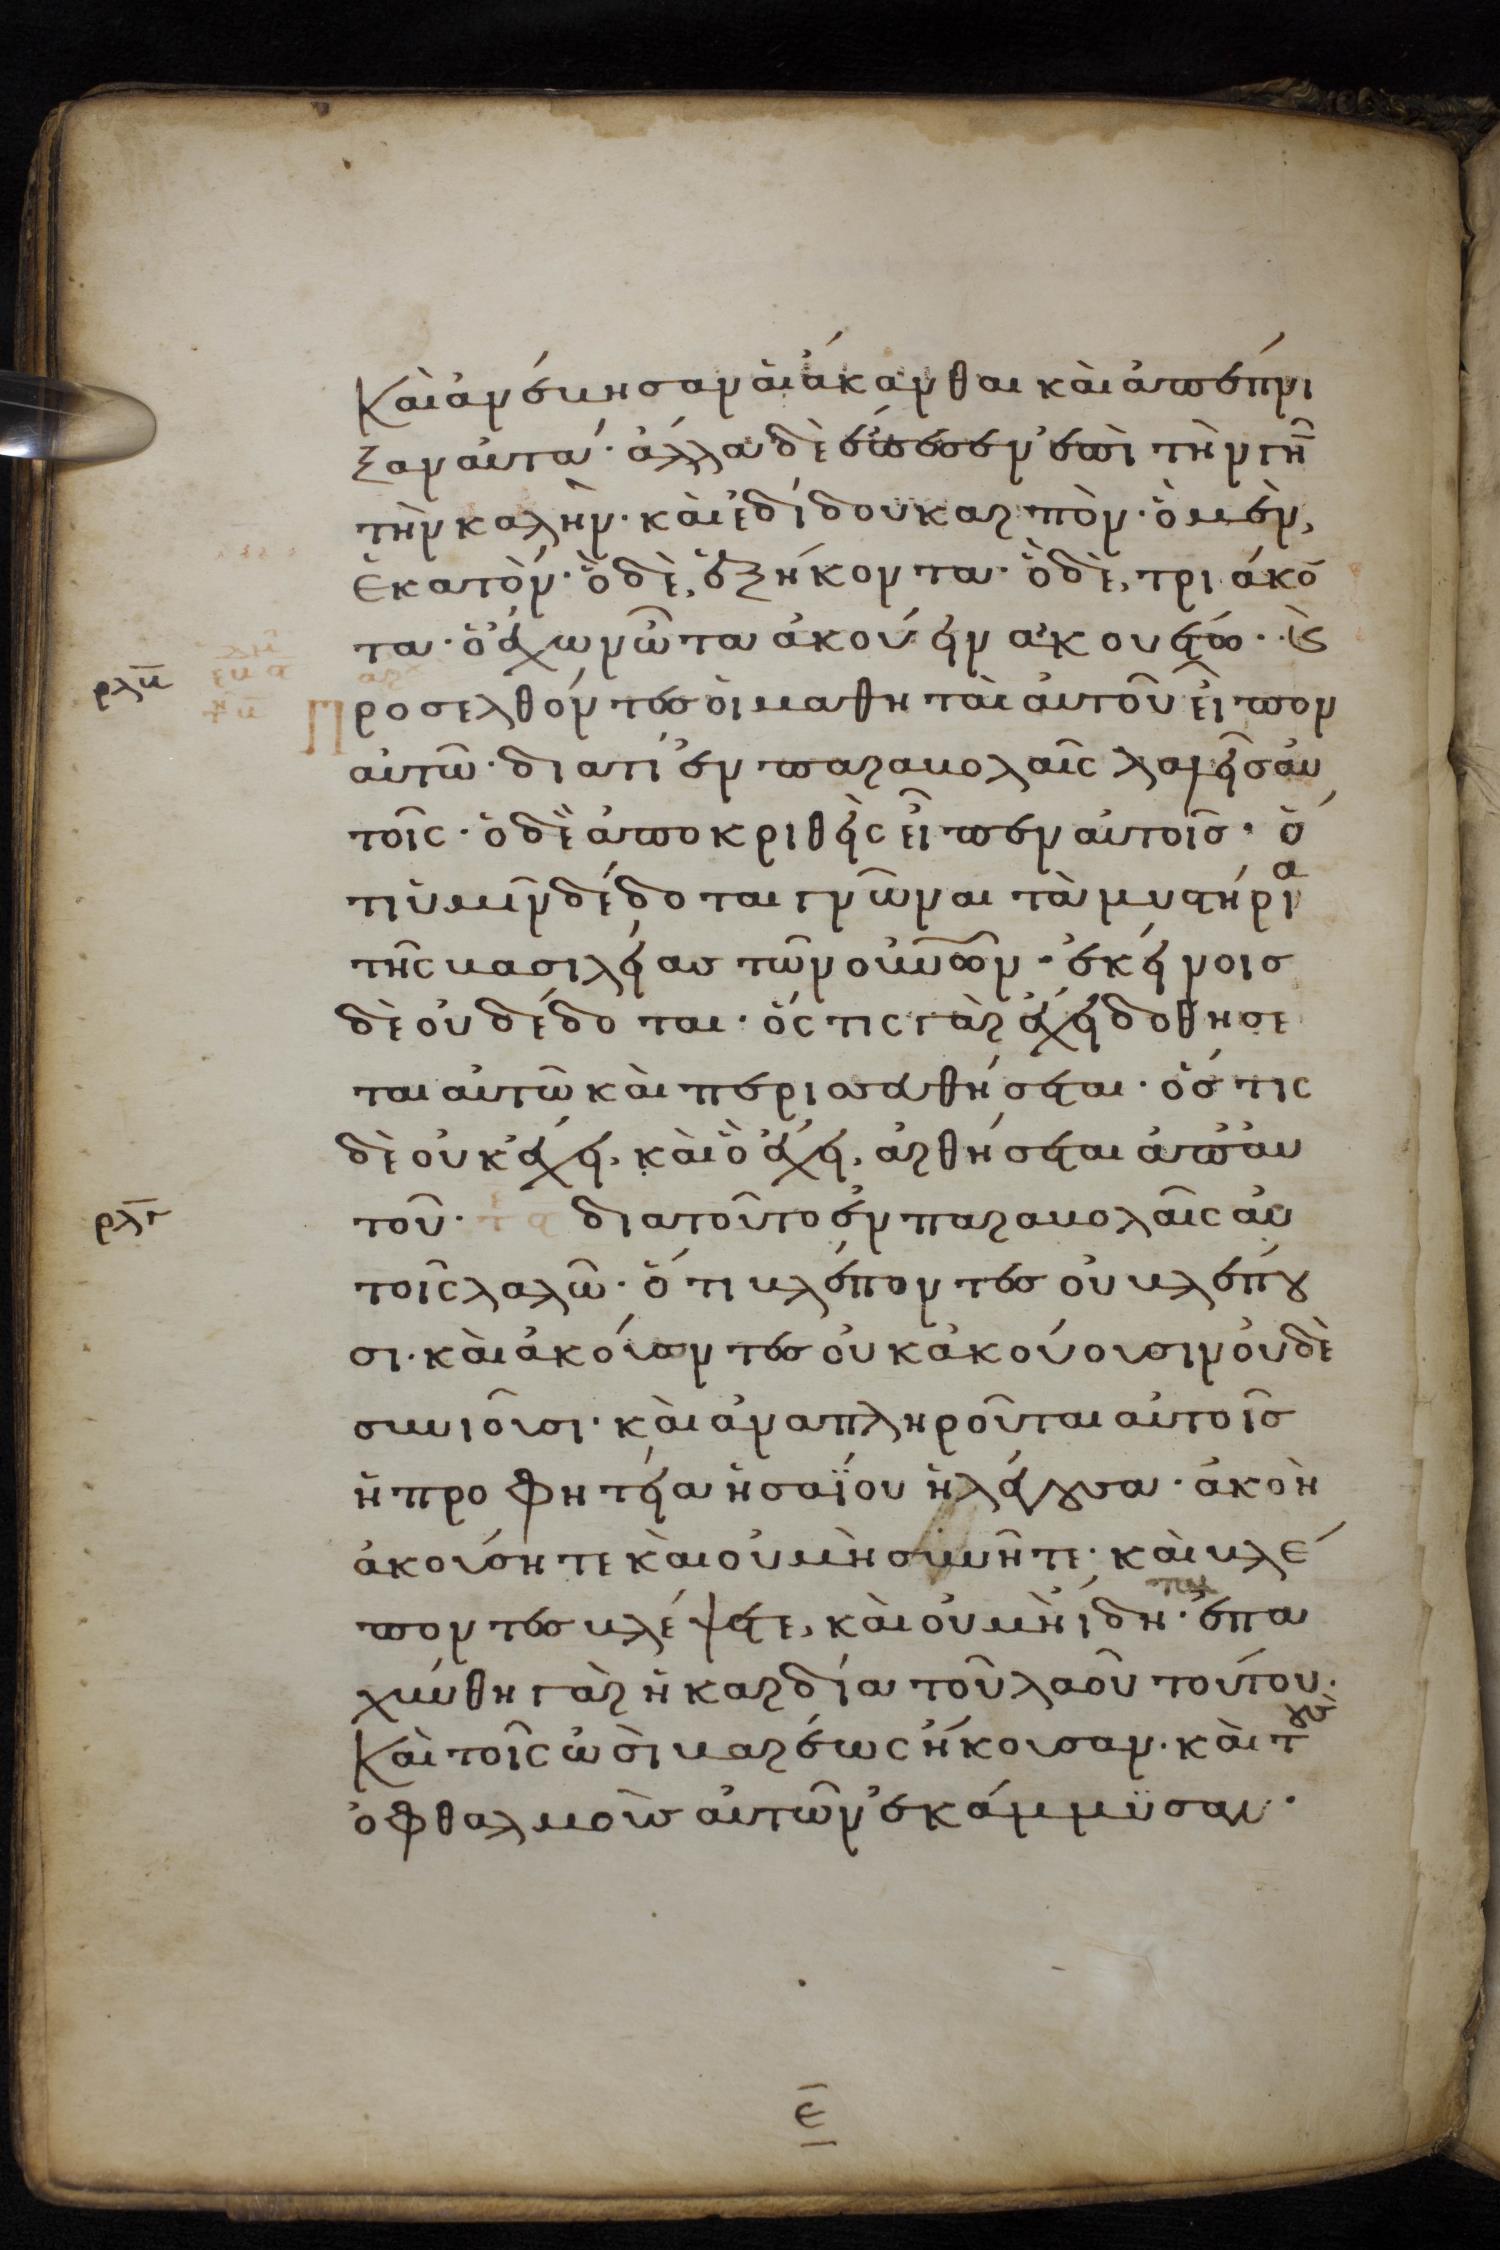 Καὶ ἀνέβησαν αἱ ἄκανθαι καὶ ἀπέπνι
ξαν αὐτά· ἄλλα δὲ ἔπεσεν ἐπὶ τὴν γῆ̅
τὴν καλὴν· καὶ ἐδίδου καρπὸν· ὃ μὲν,
ἑκατὸν· ὃ δὲ, ἑξήκοντα· ὃ δὲ, τριάκο̅
τα· ὁ ἔχων ὦτα ἀκούειν ἀκουέτω· Κ(αὶ)
Προσελθόντες οἱ μαθηταὶ αὐτοῦ εἶπον
αὐτῶ· διατί ἐν παραβολαῖς λαλεῖς αὐ
τοῖς· ὁ δὲ ἀποκριθεὶς εἶπεν αὐτοῖς· ὅ
τι ὑμῖν δέδοται γνῶναι τὰ μυστήρια
τῆς βασιλείας τῶν οὐ̅νῶν· ἐκείνοις
δὲ οὐ δέδοται· ὅςτις γὰρ ἔχει δοθησε
ται αὐτῶ καὶ περισσευθήσεται· ὅστις
δὲ οὐκ ἔχει, καὶ ὃ ἔχει, ἀρθήσεται ἀπ᾽ αὐ
τοῦ· διατοῦτο ἐν παραβολαῖς αὐ
τοῖς λαλῶ· ὅτι βλέποντες οὐ βλέπου
σι· καὶ ἀκούοντες οὐκ ἀκούουσιν οὐδὲ
συνιοῦσι· καὶ ἀναπληροῦται αὐτοῖς
ἡ προφητεία ἡσαΐου ἡ λέγουσα· ἀκοὴ
ἀκούσητε καὶ οὐ μὴ συνῆτε· καὶ βλέ
ποντες βλέψετε, καὶ οὐ μὴ ἴδητε· ἐπα
χύνθη γὰρ ἡ καρδία τοῦ λαοῦ τούτου·
Καὶ τοῖς ὠσὶ βαρέως ἤκουσαν· καὶ τοὺς
ὀφθαλμοὺς αὐτῶν ἐκάμμϋσαν·
ρλβ
ρλγ
ε̅